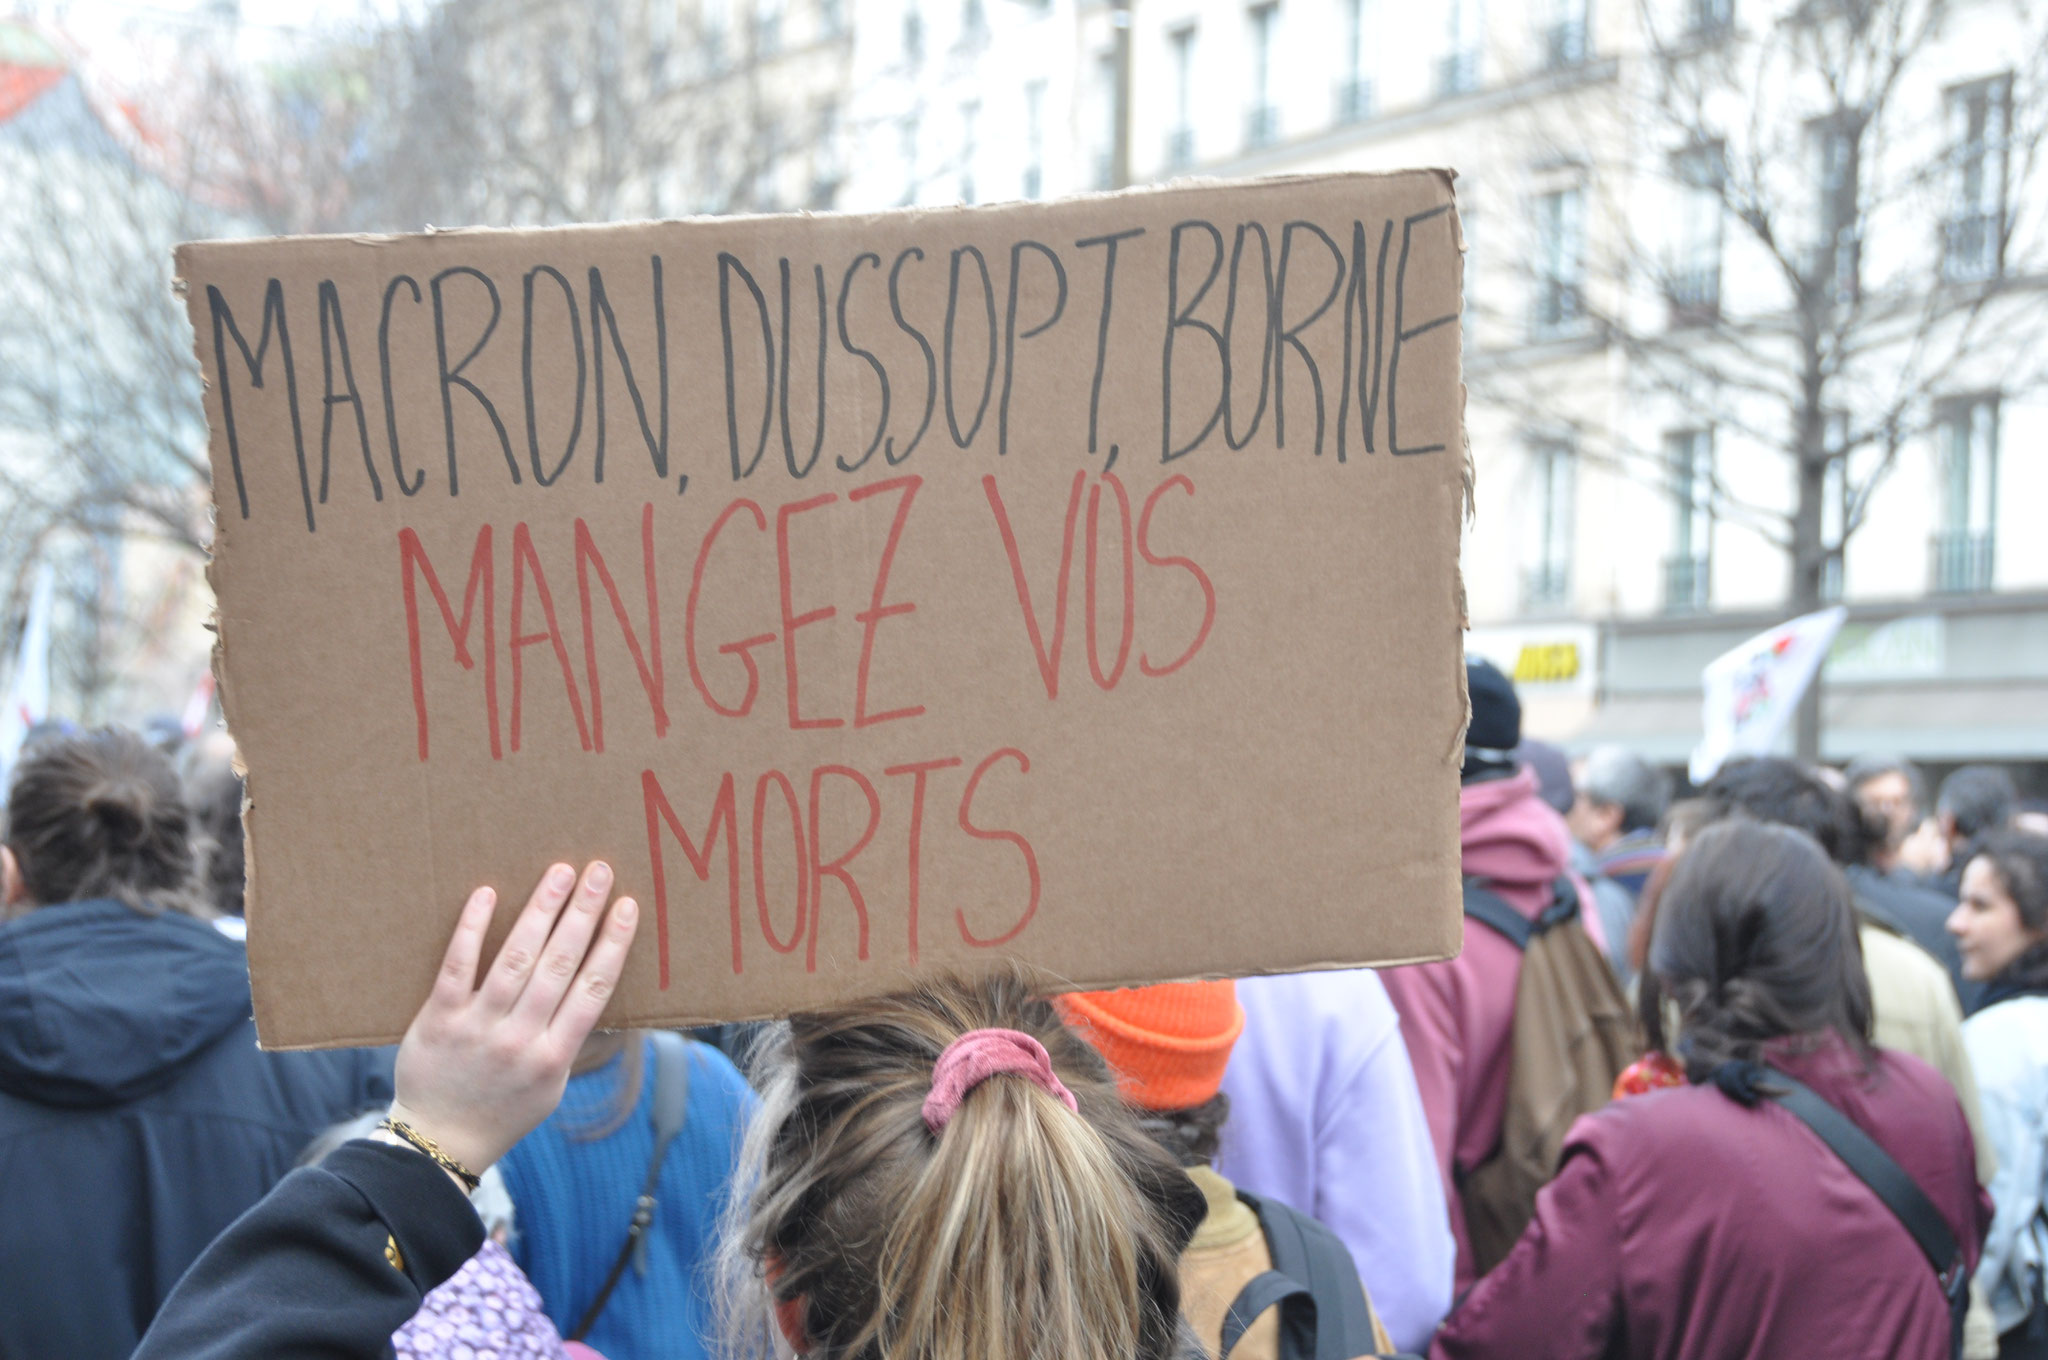 MACRON, DUSSOPT, BORNE
MANGEZ VOS
MORTS